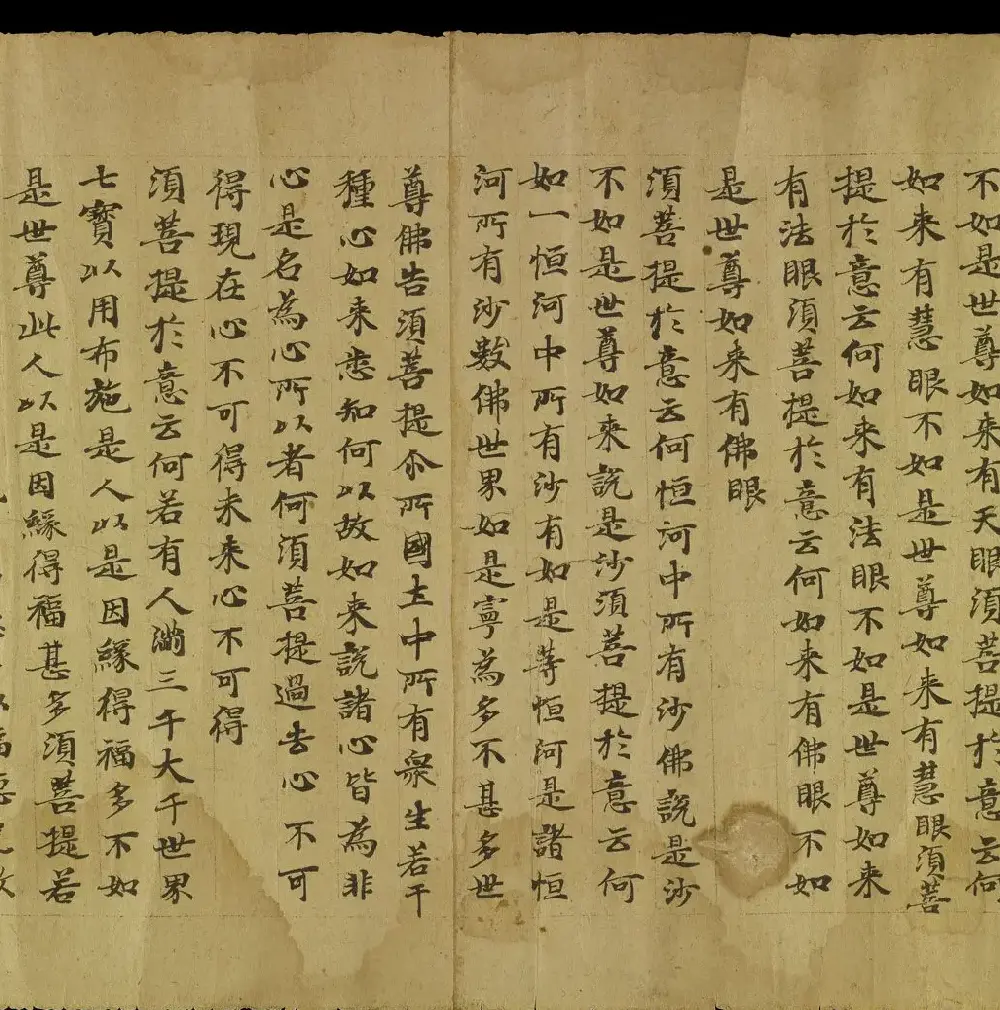 不如是世尊如来有天眼須菩提於意云何
如来有慧眼不如是世尊如来有慧眼須菩
提於意云何如来有法眼不如是世尊如来
有法眼須菩提於意云何如来有佛眼不如
是世尊如来有佛眼
須菩提於意云何恒河中所有沙佛說是沙
不如是世尊如来說是沙須菩提於意云何
如一恒河中所有沙有如是等恒河是諸恒
河所有沙數佛世界如是寧為多不甚多世
尊佛告須菩提尒所國主中所有衆生若干
種心如来悉知何以故如来說諸心皆為非
心是名為心所以者何須菩提過去心不可
得現在心不可得未来心不可得
須菩提於意云何若有人滿三千大千世界
七寶以用布施是人以是因緣得福多不如
是世尊此人以是因緣得福甚多須菩提若
福德